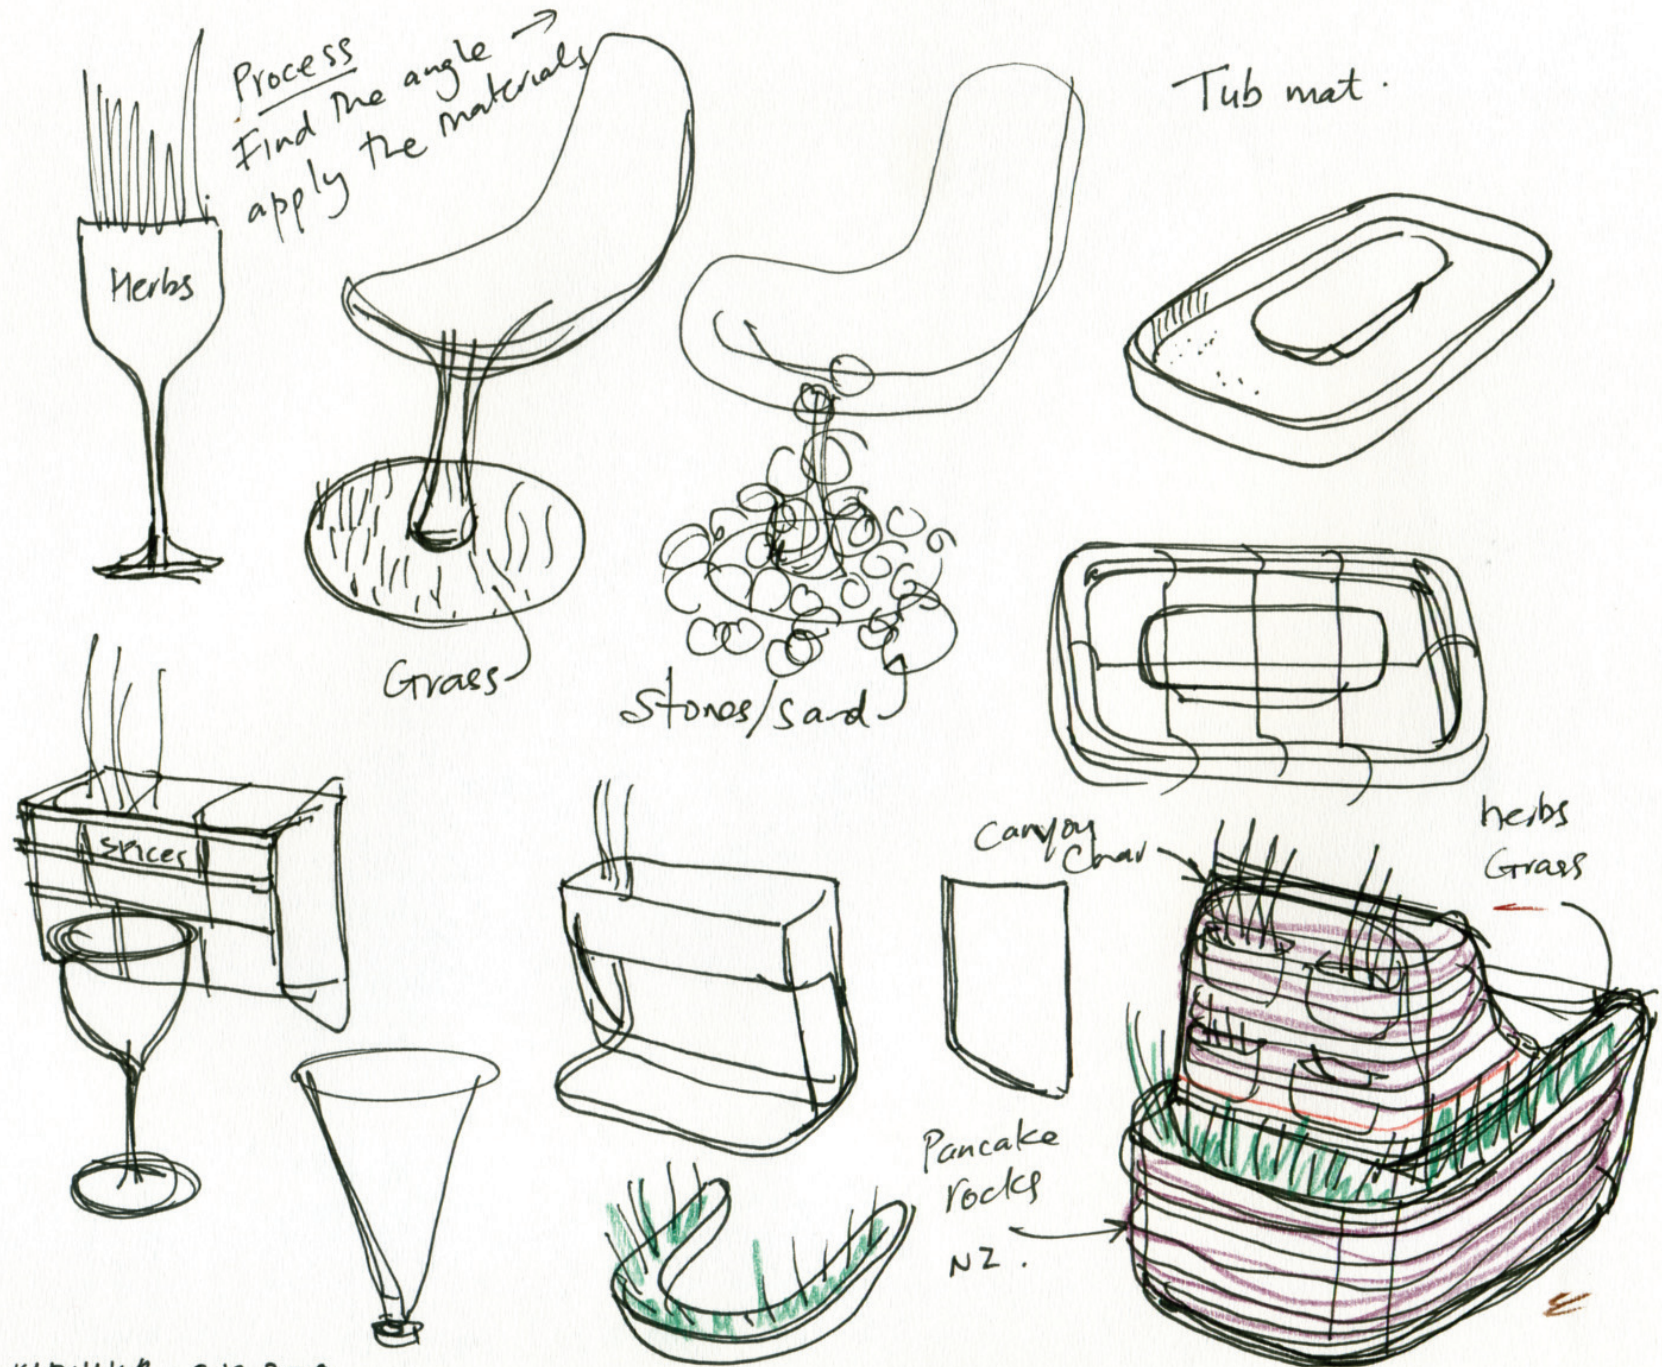 Process
Find the angle
apply the materials
Tub mat.
Herbs
Grass
Stones/sand
spices
Canyon
herbs
Grass
Pancake
rocks
NZ.